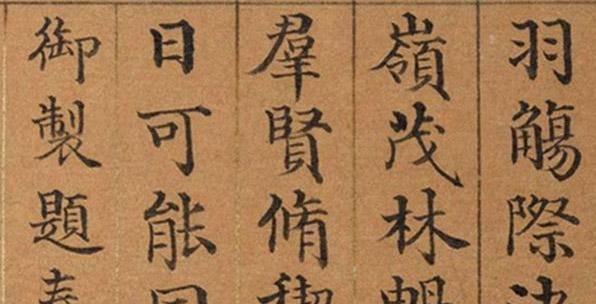 羽觴際
嶺茂林
羣賢脩
日可能
御製題